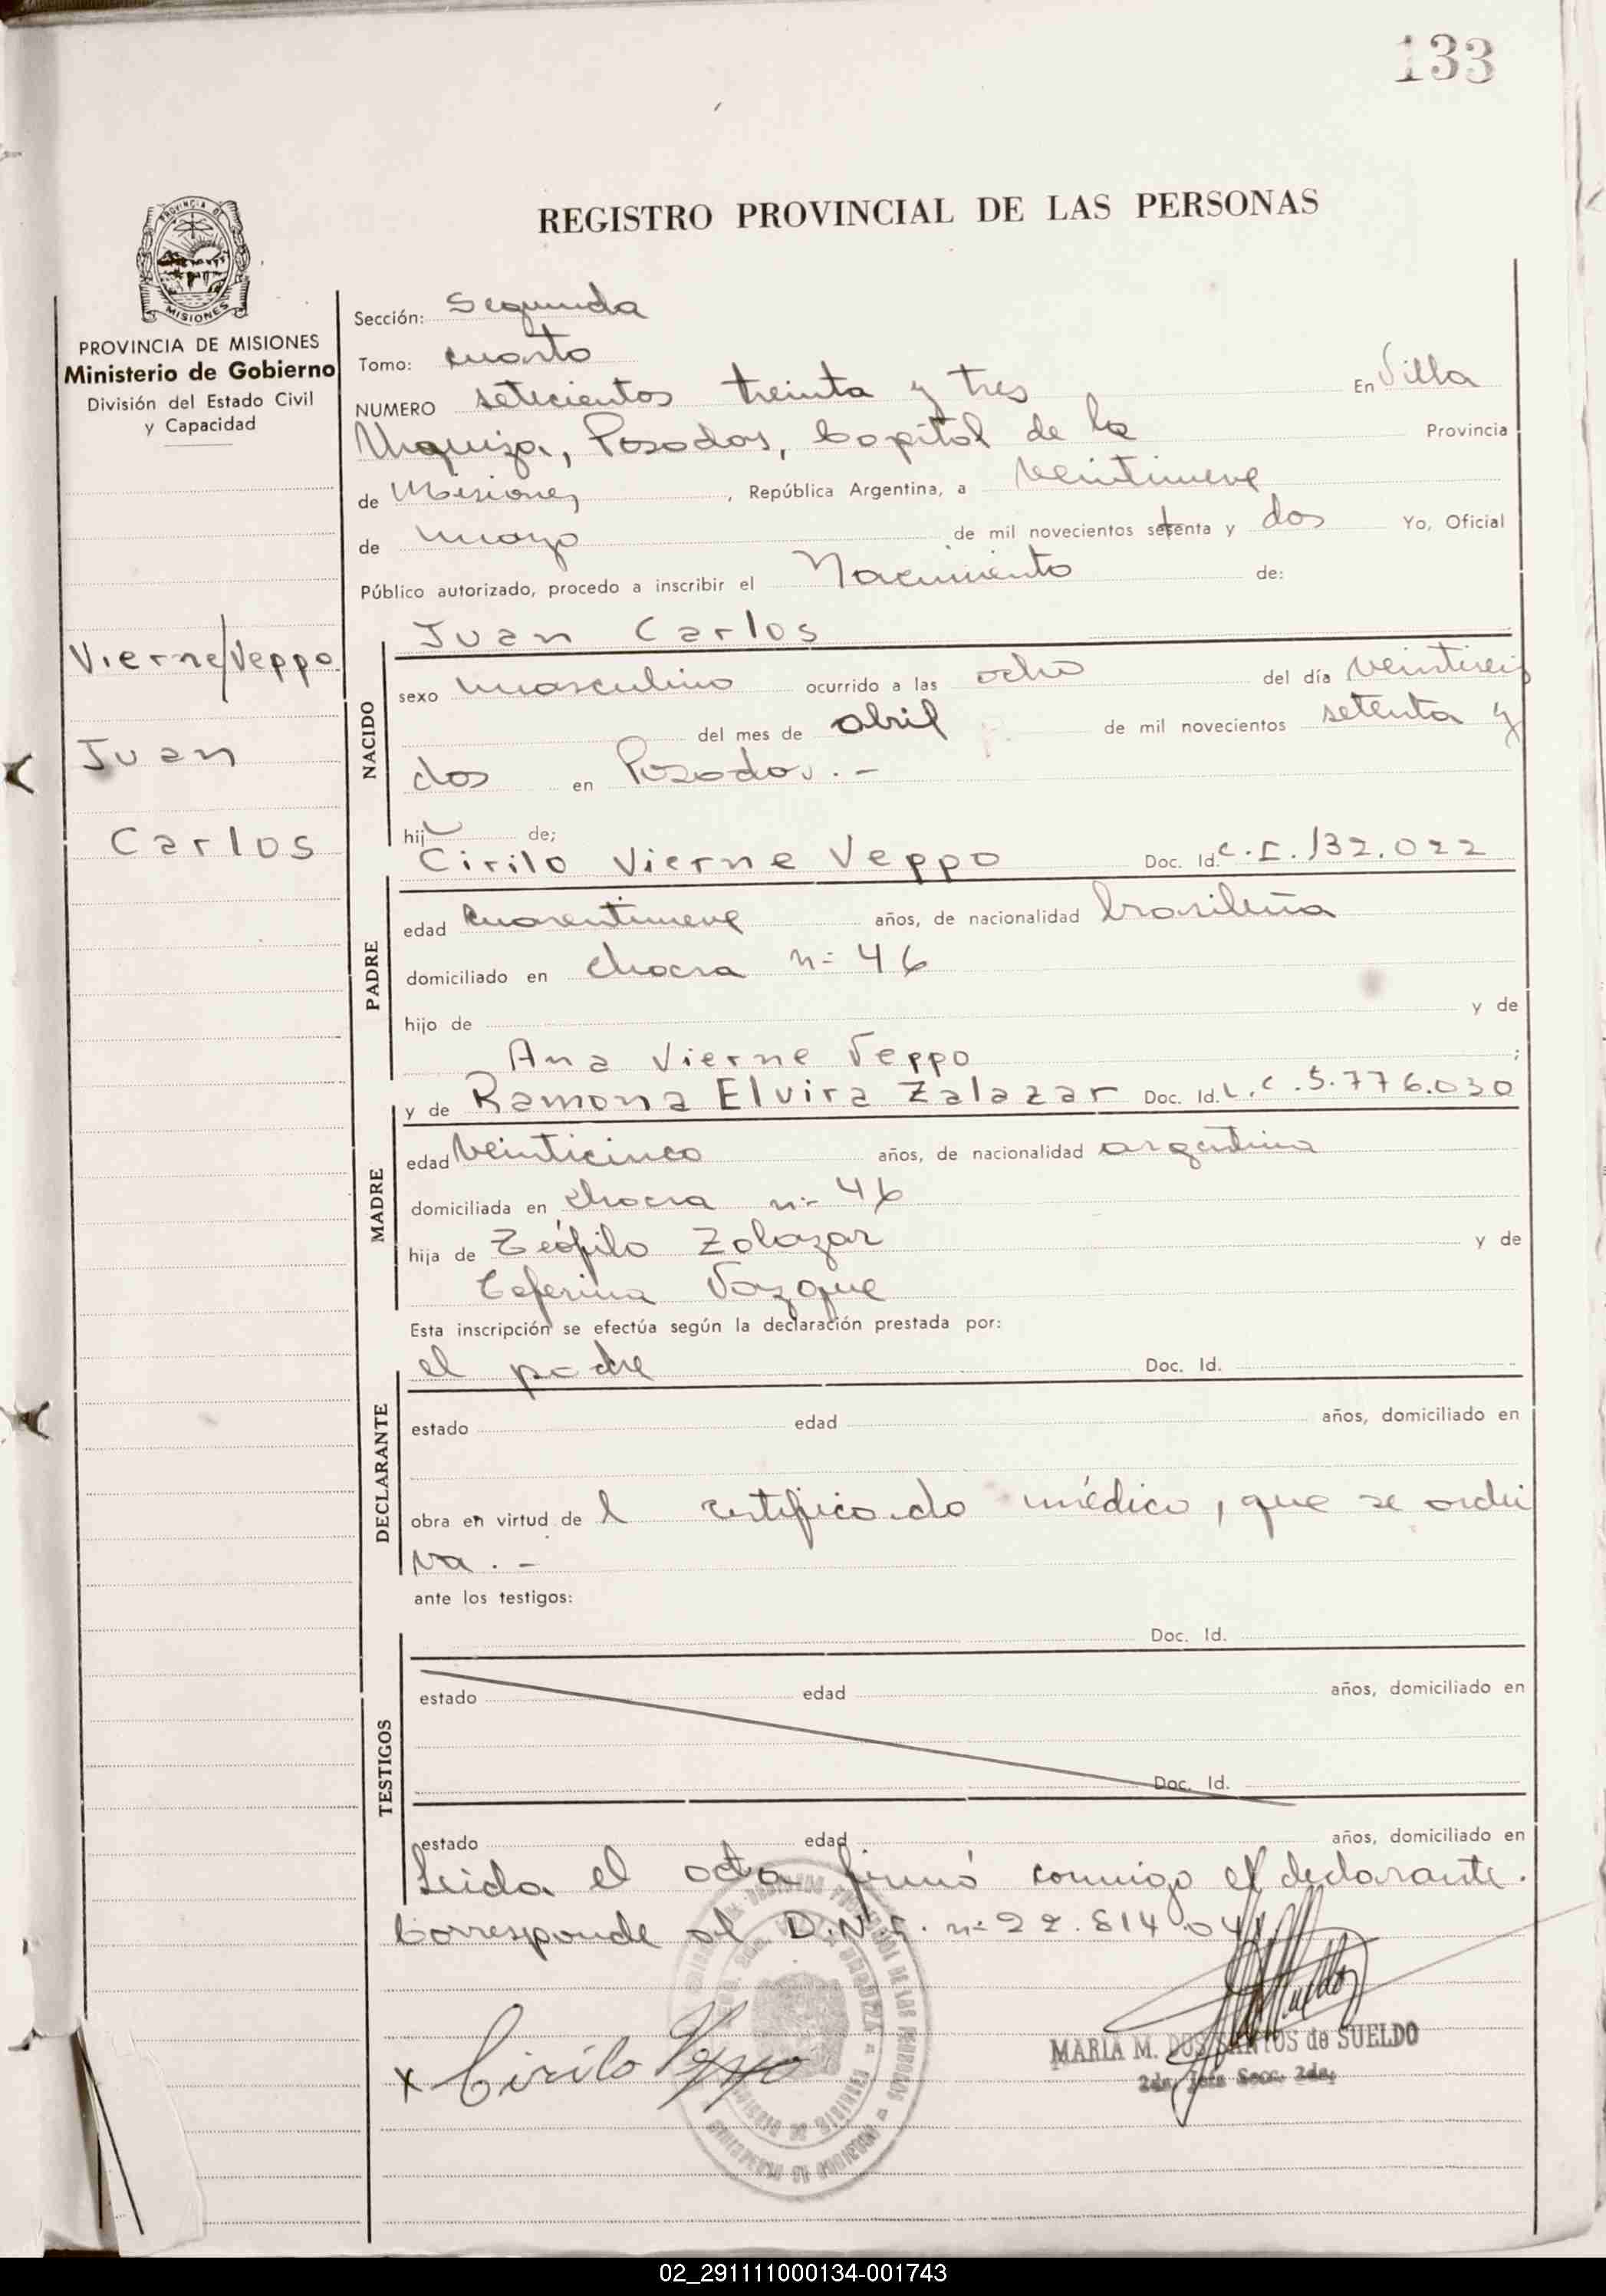 133
REGISTRO PROVINCIAL DE LAS PERSONAS
PROVINCIA DE MISIONES
Ministerio de Gobierno
División del Estado Civil
y Capacidad
Vierne/Veppo
Juan
Carlos
Sección: Segunda
Tomo: cuarto
NUMERO setecientos treinta y tres En Villa
Urquiza, Posadas, Capital de la Provincia
de Misiones, República Argentina, a veintinueve
de mayo de mil novecientos setenta y dos Yo, Oficial
Público autorizado, procedo a inscribir el Nacimiento de:
NACIDO
Juan Carlos
sexo masculino ocurrido a las ocho del día veintiseis
del mes de abril de mil novecientos setenta y
dos en Posadas.-
hijo de;
PADRE
Cirilo Vierne Veppo Doc. Id. C.I. 132.022
edad cuarentinueve años, de nacionalidad brasileña
domiciliado en chacra n= 46
hijo de y de
Ana Vierne Veppo ;
MADRE
y de Ramona Elvira Zalazar Doc. Id. L.C. 5.776.030
edad veinticinco años, de nacionalidad argentina
domiciliada en chacra n=- 46
hija de Teófilo Zalazar y de
Ceferina Vazque
Esta inscripción se efectúa según la declaración prestada por:
DECLARANTE
el padre Doc. Id.
estado edad años, domiciliado en
obra en virtud de l certificado médico, que se archi
va.-
ante los testigos:
TESTIGOS
Doc. Id.
estado edad años, domiciliado en
Doc. Id.
estado edad años, domiciliado en
Leida el acta firmó conmigo el declarante.
Corresponde al D.N.I. n=
x Cirilo Veppo
MARIA M. DOS SANTOS de SUELDO
2da. Jefe Secc. 2da.
02_291111000134-001743